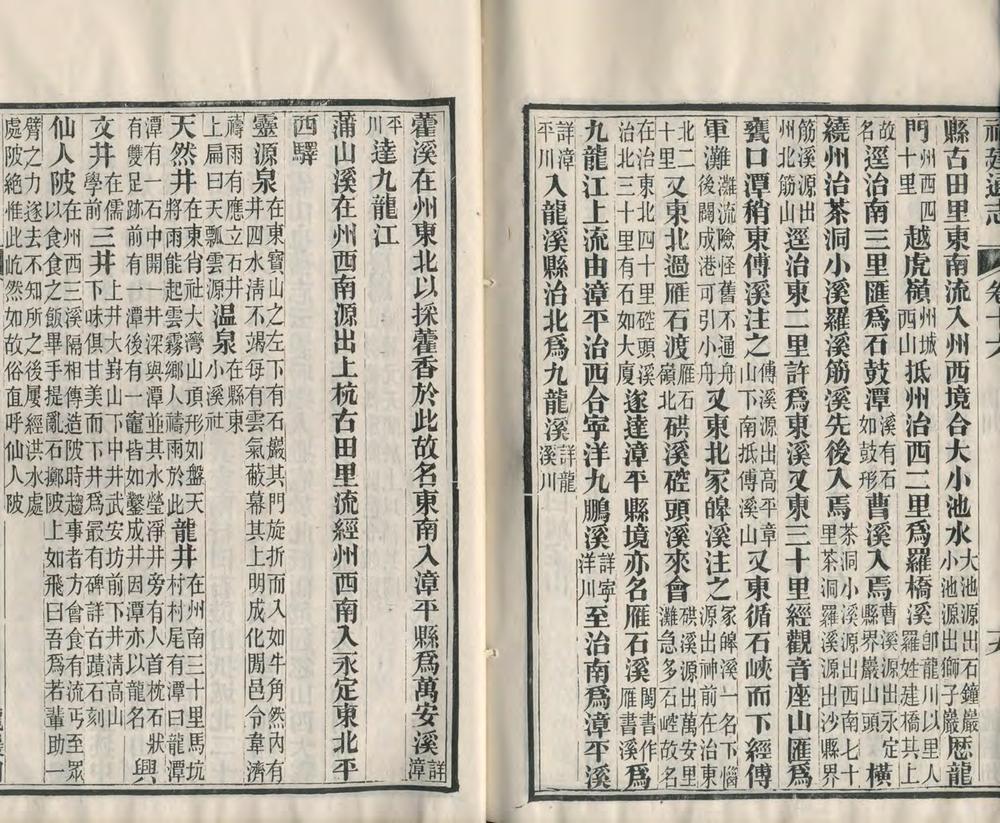 縣古田里東南流入州西境合大小池水大池源出石鐘巖小池源出獅子巖歷龍
門州西四十里越虎嶺州城西山抵州治西二里爲羅橋溪卽龍川以里人羅姓建橋其上
故名逕治南三里匯爲石鼓潭溪有石如鼓形曹溪入焉曹溪源出永定縣界巖山頭橫
繞州治茶洞小溪羅溪筋溪先後入焉茶洞小溪源出西南七十里茶洞羅溪源出沙縣界
筋溪源出州北筋山逕治東二里許爲東溪又東三十里經觀音座山匯爲
甕口潭稍東傅溪注之傅溪源出高平章山下南抵傅溪山又東循石峽而下經傅
軍灘灘流險怪舊不通舟後闢成港可引小舟又東北冢皞溪注之冢皞溪一名下惱源出神前在治東
北二十里又東北過雁石渡雁石嶺北溪硿頭溪來會溪源出萬安里灘急多石崆故名
在治東北四十里硿頭溪治北三十里有石如大厦遂達漳平縣境亦名雁石溪閩書作雁書溪爲
九龍江上流由漳平治西合寧洋九鵬溪詳寧洋川至治南爲漳平溪
詳漳平川入龍溪縣治北爲九龍溪詳龍溪川
藿溪在州東北以採藿香於此故名東南入漳平縣爲萬安溪詳漳
平川達九龍江
蒲山溪在州西南源出上杭古田里流經州西南入永定東北平
西驛
靈源泉在東寶山之左下有石巖其門旋折而入如牛角然內有井四水淸不竭每有雲氣蔽幕其上明成化閒邑令韋濟
禱雨有應立石井上扁曰天瓢雲源溫泉在縣東小溪社
天然井在東肖社大灣山頂形如盤天將雨能起雲霧鄉人禱雨於此龍井在州南三十里馬坑村村尾有潭曰龍潭
潭有一石中開一井深與潭並其水瑩淨井旁有人首枕石狀有雙足跡前有一潭後有一竈皆如鑿成井因潭亦以龍名
文井在儒學前三井上井大㟁山下中井武安坊前下井淸高山下味俱甘美而下井爲最有碑詳古蹟石刻
仙人陂在州西三溪隔相傳造陂時趨事者方會食有流丐至眾以食食之飯畢手提亂石擲陂上如飛曰吾爲若輩助一
臂之力遂去不知所之後屢經洪水處處陂絕惟此屹然如故俗直呼仙人陂